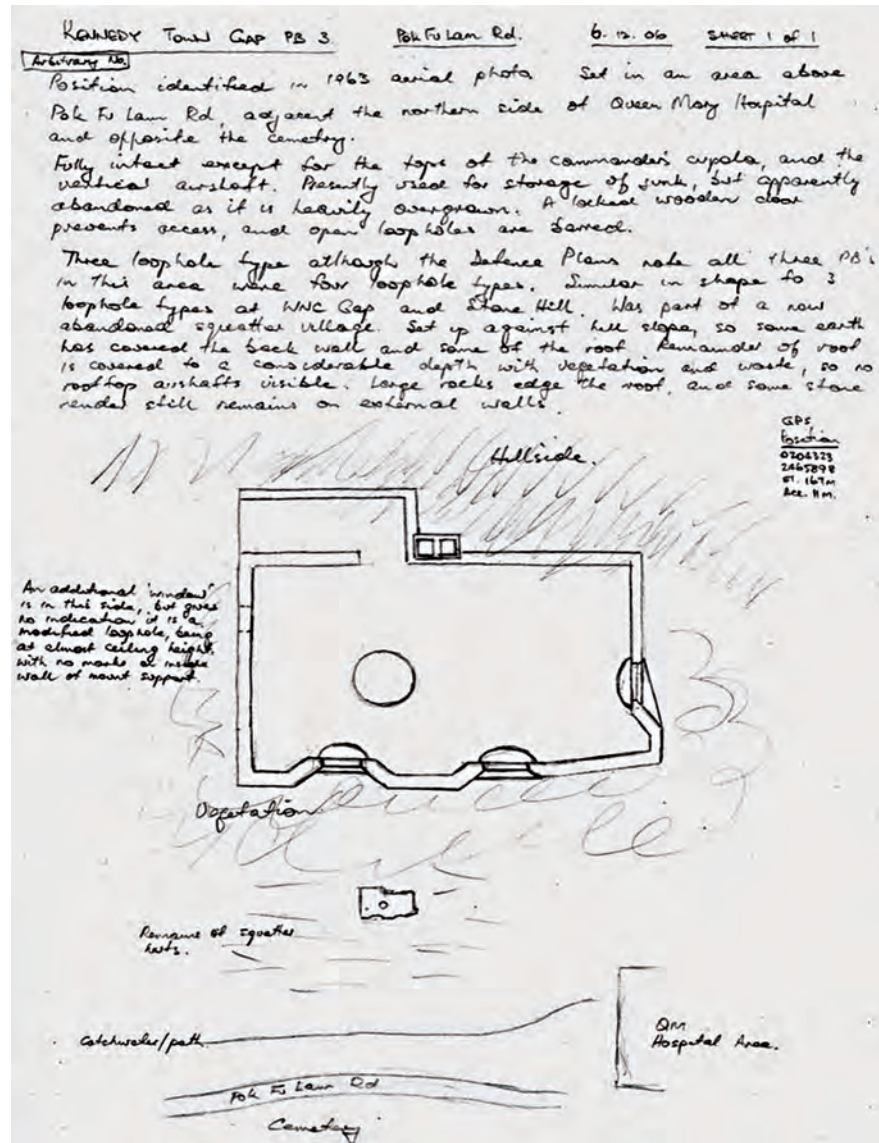 KENNEDY TOWN GAP PB 3. Pok Fu Lam Rd. 6.12.06 SHEET 1 of 1
Arbitrary No.
Position identified in 1963 aerial photo. Set in an area above
Pok Fu Lam Rd, adjacent the northern side of Queen Mary Hospital
and opposite the cemetery.
Fully intact except for the tops of the commander's cupola, and the
vertical airshaft. Presently used for storage of junk, but apparently
abandoned as it is heavily overgrown. A locked wooden door
prevents access, and open loopholes are barred.
Three loophole type although the Defence Plans note all three PB's
in this area were four loophole types. Similar in shape to 3
loophole types at WNC Gap and Stone Hill. Was part of a now
abandoned squatter village. Set up against hill slope, so some earth
has covered the back wall and some of the roof. Remainder of roof
is covered to a considerable depth with vegetation and waste, so no
rooftop airshafts visible. Large rocks edge the roof, and some stone
render still remains on external walls.
GPS
Position
0204323
2465898
El. 167m
Acc. 11m.
Hillside.
An additional 'window'
is in this side, but gives
no indication it is a
modified loophole, being
at almost ceiling height
with no marks on inside
wall of mount support.
Vegetation
Remains of squatter
huts.
Catchwater/path
QM
Hospital Area.
Pok Fu Lam Rd
Cemetery